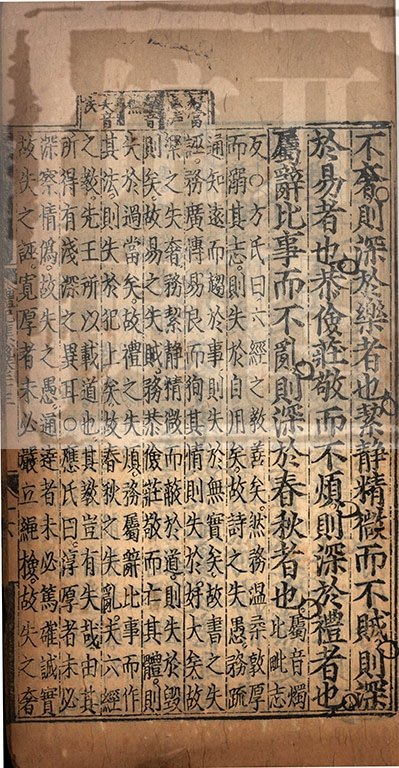 不奢則深於樂者也絜静精微而不賊則深
於易者也恭儉莊敬而不煩則深於禮者也
屬辭比事而不亂則深於春秋者也 屬音燭比毗志
反○方氏曰六經之教善矣然務温柔敦厚
而溺其志則失於自用矣故詩之失愚務疏
通知遠而趨於事則失於無實矣故書之失
誣務廣博易良而狥其情則失於好大矣故
樂之失奢務絜静精微而蔽於道則失於毀
則矣故易之失賊務恭儉莊敬而亡其體則
失於過當矣故禮之失煩務屬辭比事而作
其法則失於犯上矣故春秋之失亂夫六經
之教先王所以載道也其教豈有失哉由其
所得有淺深之異耳○應氏曰淳厚者未必
深察情僞故失之愚通達者未必篤確誠實
故失之誣寬厚者未必嚴立繩檢故失之奢